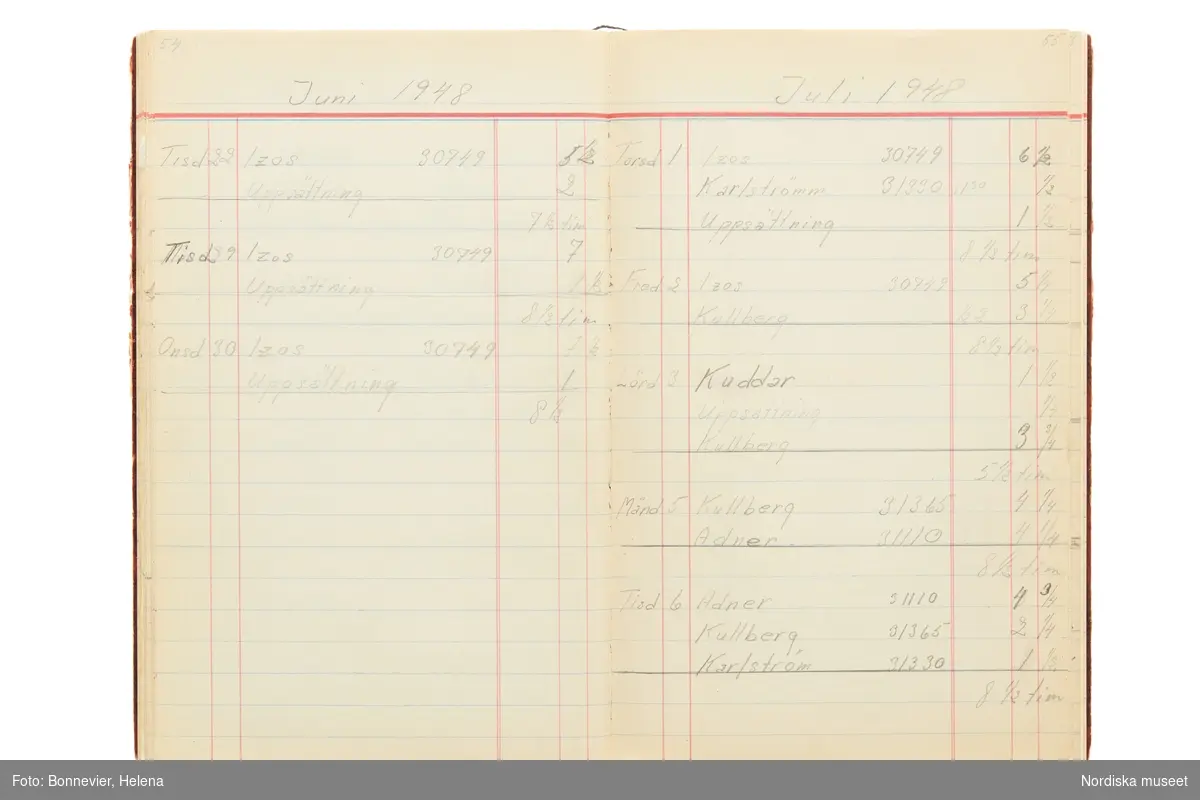 54
Juni 1948
Tisd 22 Izos 30749 5 1/2
Uppsättning 2
7 1/2 tim
Tisd 29 Izos 30749 7
Uppsättning 1 1/2
8 1/2 tim
Onsd 30 Izos 30749 7 1/2
Uppsättning 1
8 1/2
55
Juli 1948
Torsd 1 Izos 30749 6 1/2
Karlströmm 31330 1/2
Uppsättning 1 1/2
8 1/2 tim
Fred 2 Izos 30749 5
Kullberg 3
8 1/2 tim
Lörd 3 Kuddar 1 1/2
Uppsättning 1/2
Kullberg 3
5 1/2 tim
Månd 5 Kullberg 31365 4 1/4
Adner 31110 4 1/4
8 1/2 tim
Tisd 6 Adner 31110 4 3/4
Kullberg 31365 2 1/4
Karlström 31330 1 1/2
8 1/2 tim
Foto: Bonnevier, Helena
Nordiska museet